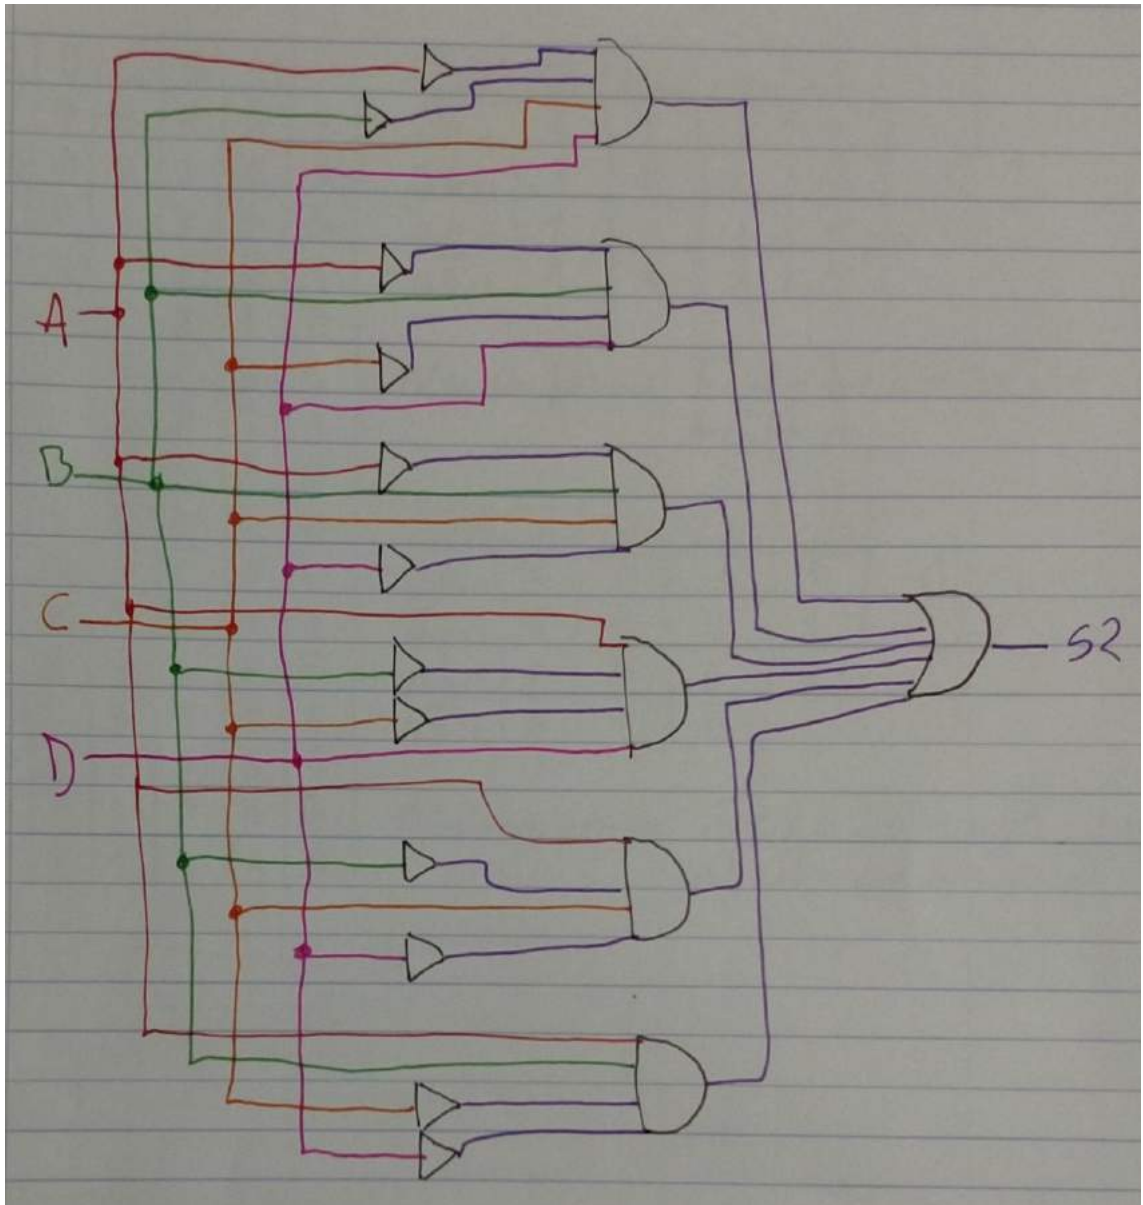 A
B
C
D
S2